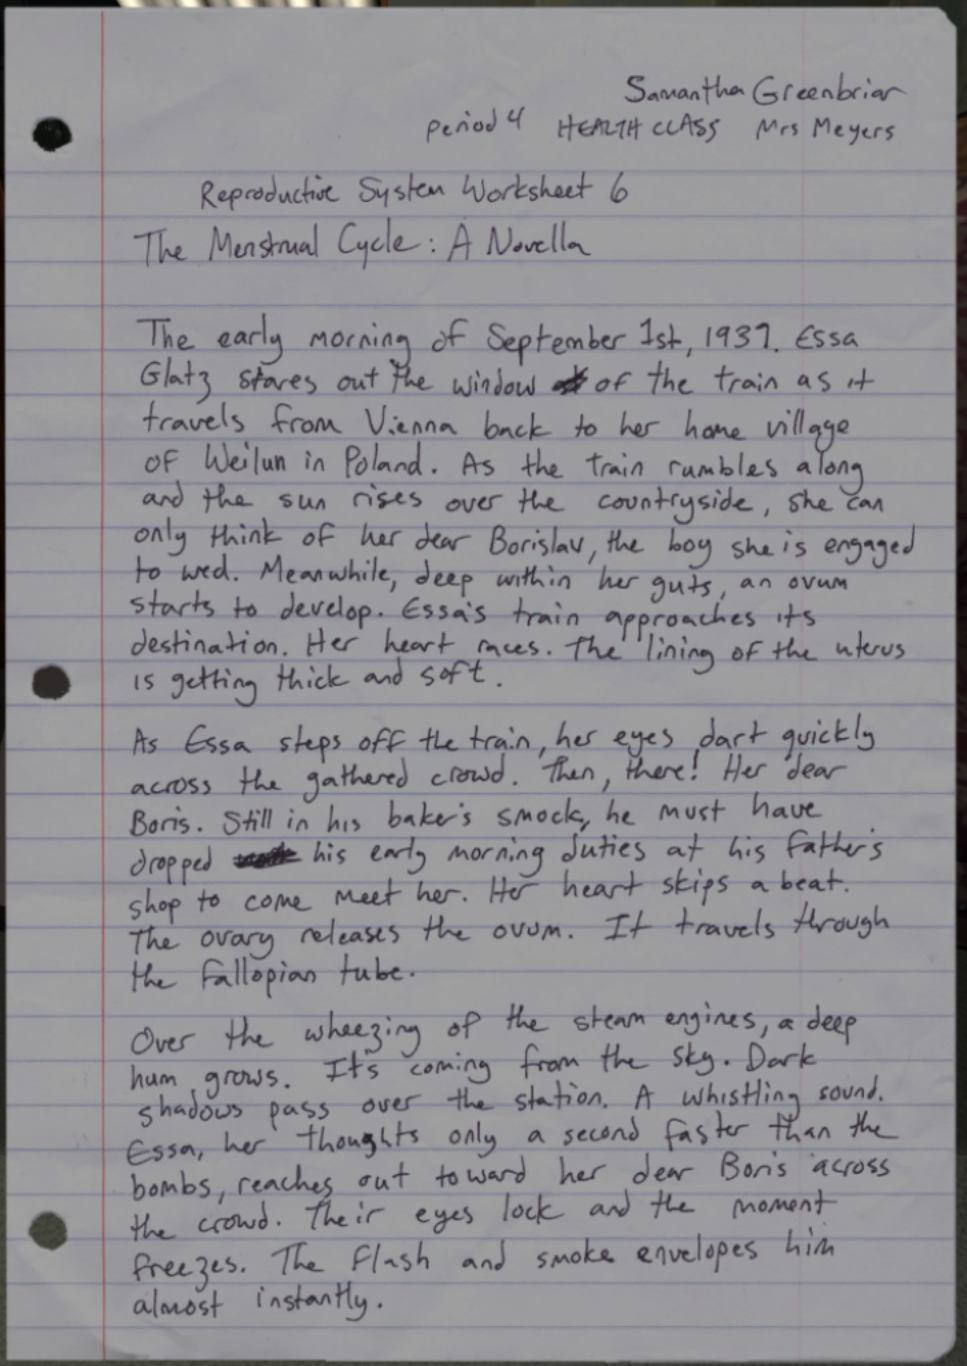 Samantha Greenbriar
Period 4 HEALTH CLASS Mrs Meyers
Reproductive System Worksheet 6
The Menstrual Cycle: A Novella
The early morning of September 1st, 1939. Essa
Glatz stares out the window of the train as it
travels from Vienna back to her home village
of Weilun in Poland. As the train rumbles along
and the sun rises over the countryside, she can
only think of her dear Borislav, the boy she is engaged
to wed. Meanwhile, deep within her guts, an ovum
starts to develop. Essa's train approaches its
destination. Her heart races. The lining of the uterus
is getting thick and soft.
As Essa steps off the train, her eyes dart quickly
across the gathered crowd. Then, there! Her dear
Boris. Still in his baker's smock, he must have
dropped his early morning duties at his father's
shop to come meet her. Her heart skips a beat.
The ovary releases the ovum. It travels through
the fallopian tube.
Over the wheezing of the steam engines, a deep
hum grows. It's coming from the sky. Dark
shadows pass over the station. A whistling sound.
Essa, her thoughts only a second faster than the
bombs, reaches out toward her dear Boris across
the crowd. Their eyes lock and the moment
freezes. The flash and smoke envelopes him
almost instantly.